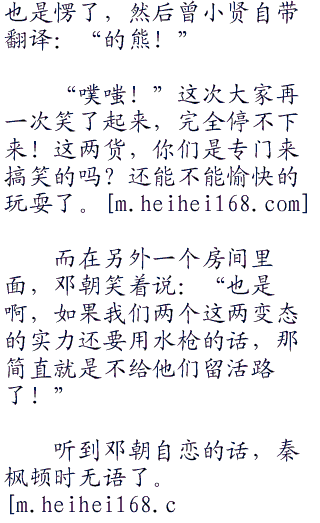 也是愣了，然后曾小贤自带
翻译：“的熊！”
“噗嗤！”这次大家再
一次笑了起来，完全停不下
来！这两货，你们是专门来
搞笑的吗？还能不能愉快的
玩耍了。[m.heihei168.com]
而在另外一个房间里
面，邓朝笑着说：“也是
啊，如果我们两个这两变态
的实力还要用水枪的话，那
简直就是不给他们留活路
了！”
听到邓朝自恋的话，秦
枫顿时无语了。
[m.heihei168.c